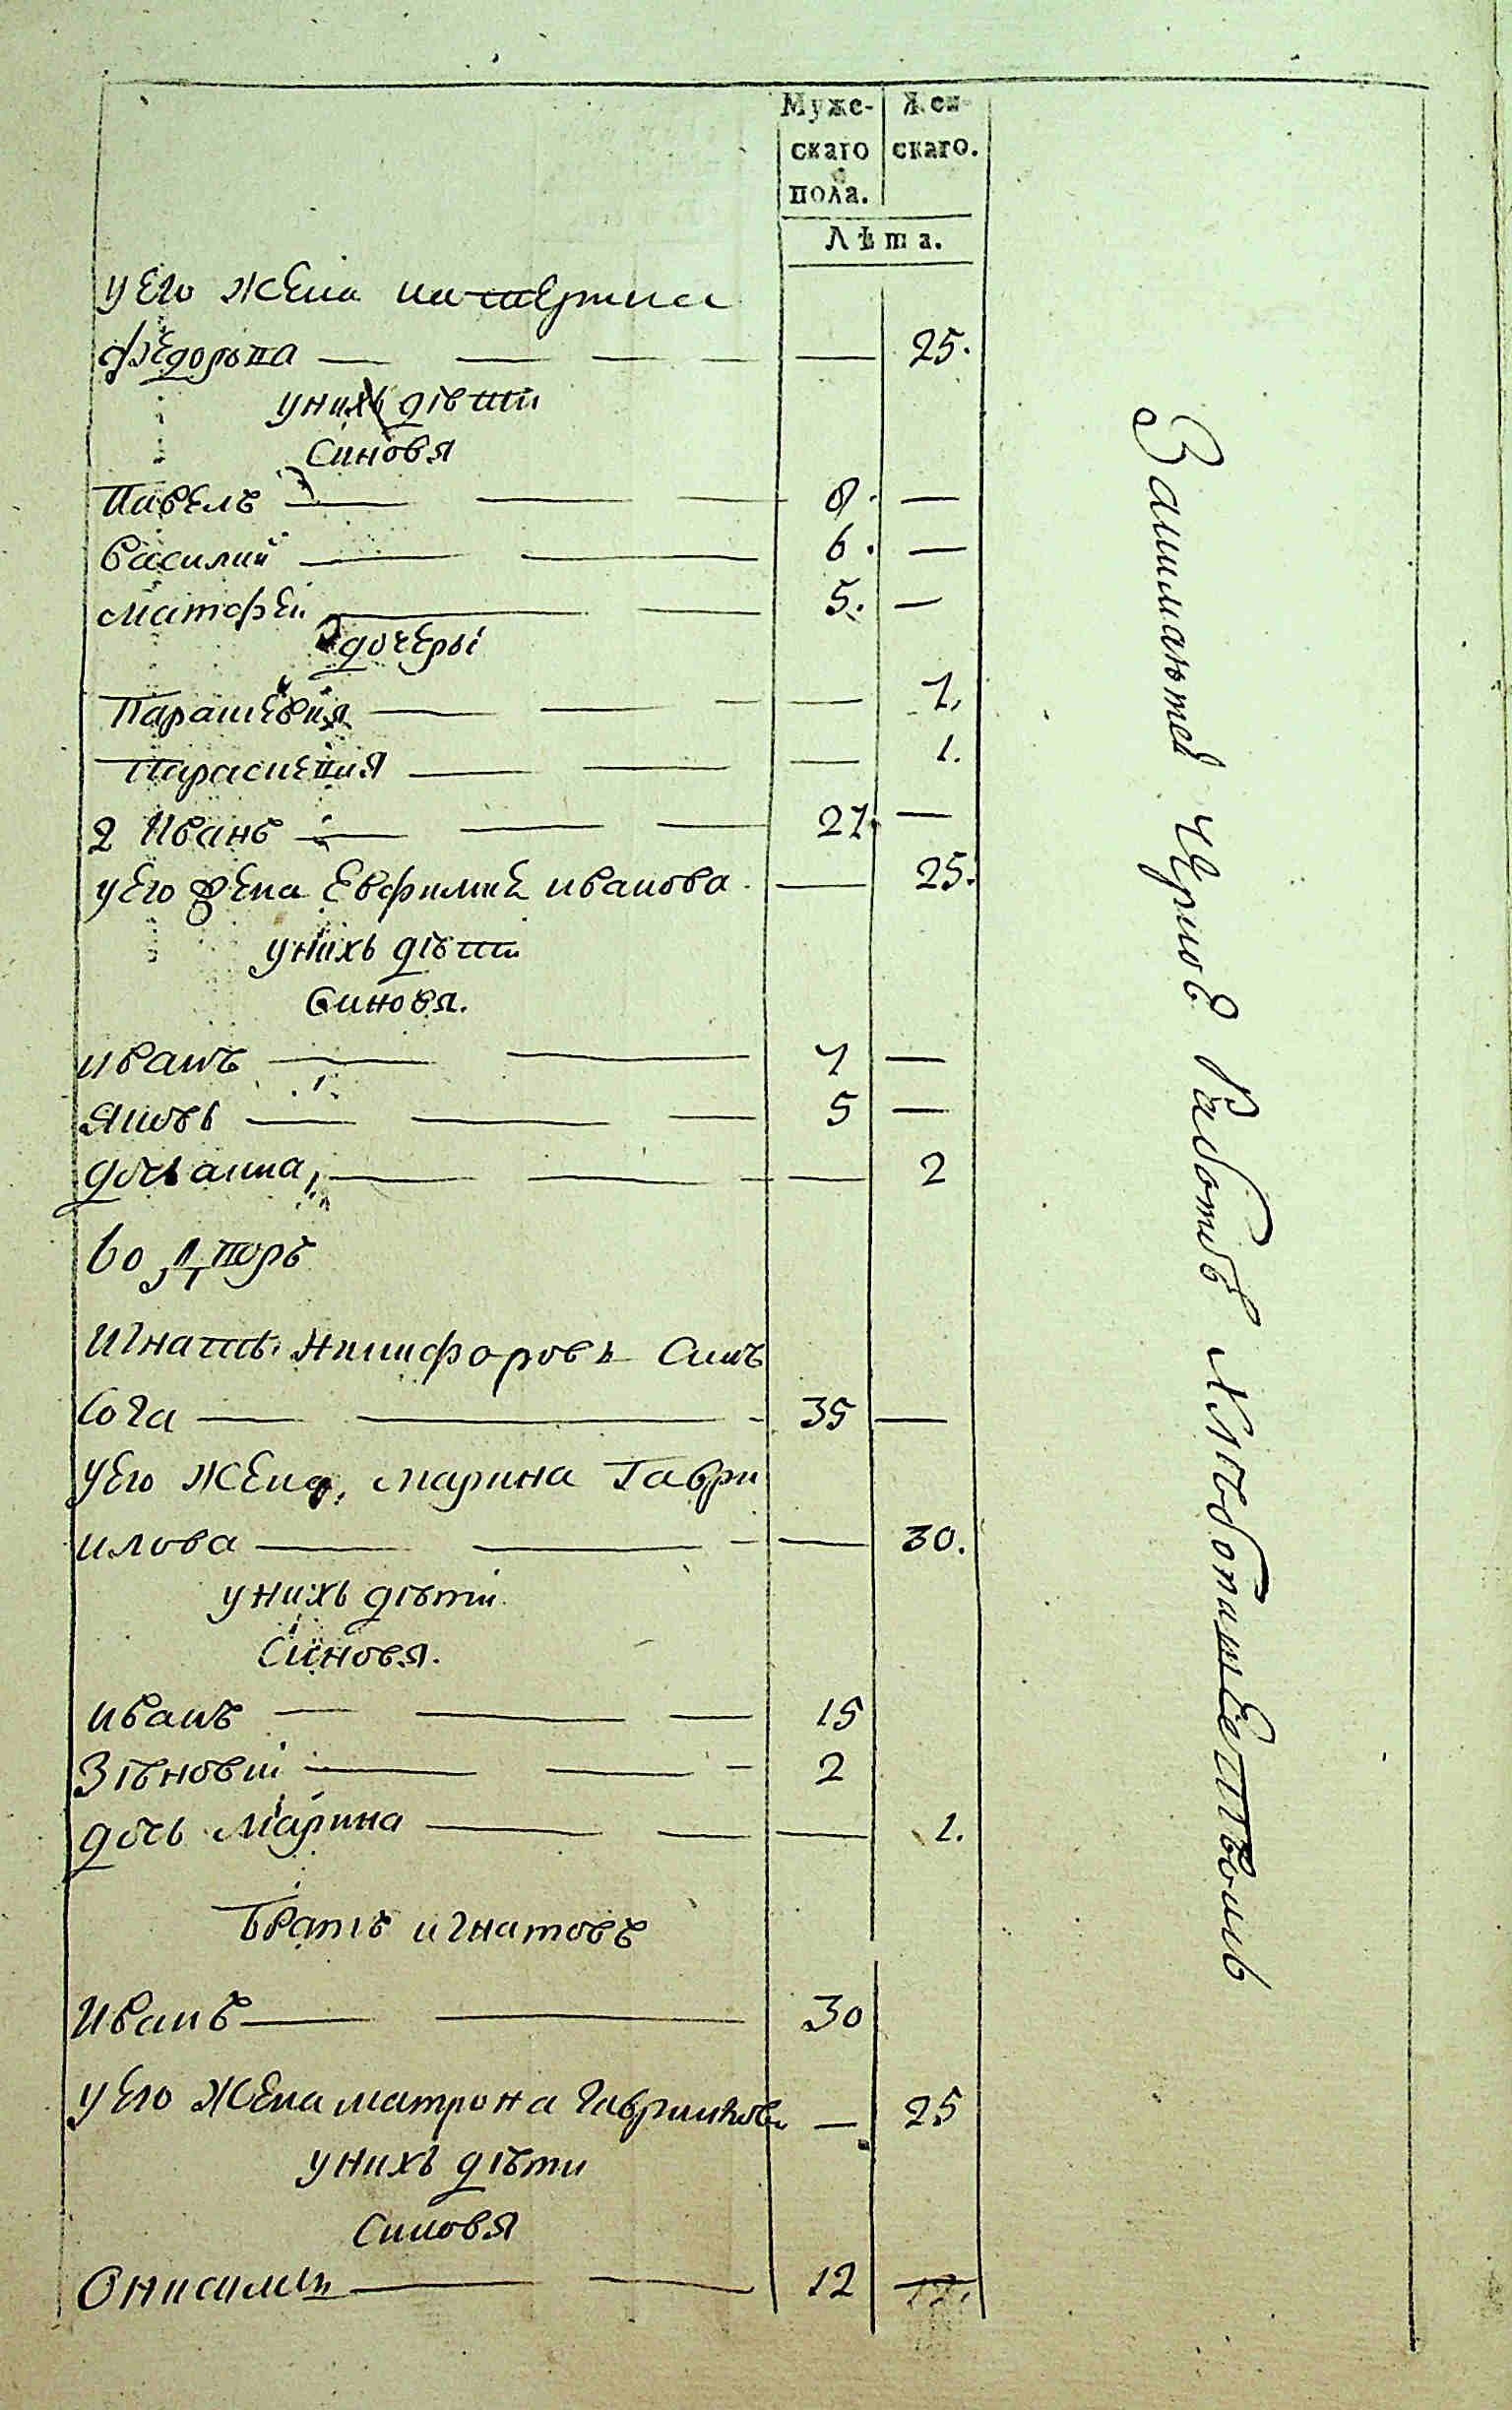 Муже- Жен-
скаго скаго.
пола.
Лѣта.
уего жена
федорова — 25.
унихъ дѣти
Синовя
Павелъ — 8. —
Василий — 6. —
матфей — 5. —
дочеры
Парашевия — 7.
Параскевия — 1.
2 Иванъ — 27. —
уего жена Евфимия иванова — 25.
унихъ дѣти
Синовя.
иванъ — 7 —
Яковъ — 5 —
дочь анна — 2
во дворѣ
Игнатъ Никифоровъ Синъ
35 —
уего жена, марина Гаври
илова — 30.
унихъ дѣти
Синовя.
иванъ — 15
Зѣновий — 2
дочь Марина — 1.
Братъ игнатовъ
Иванъ — 30
уего жена матрона — 25
унихъ дѣти
Синовя
Онисимъ — 12
Занимаются Чорною Работою хлѣбопашествомъ